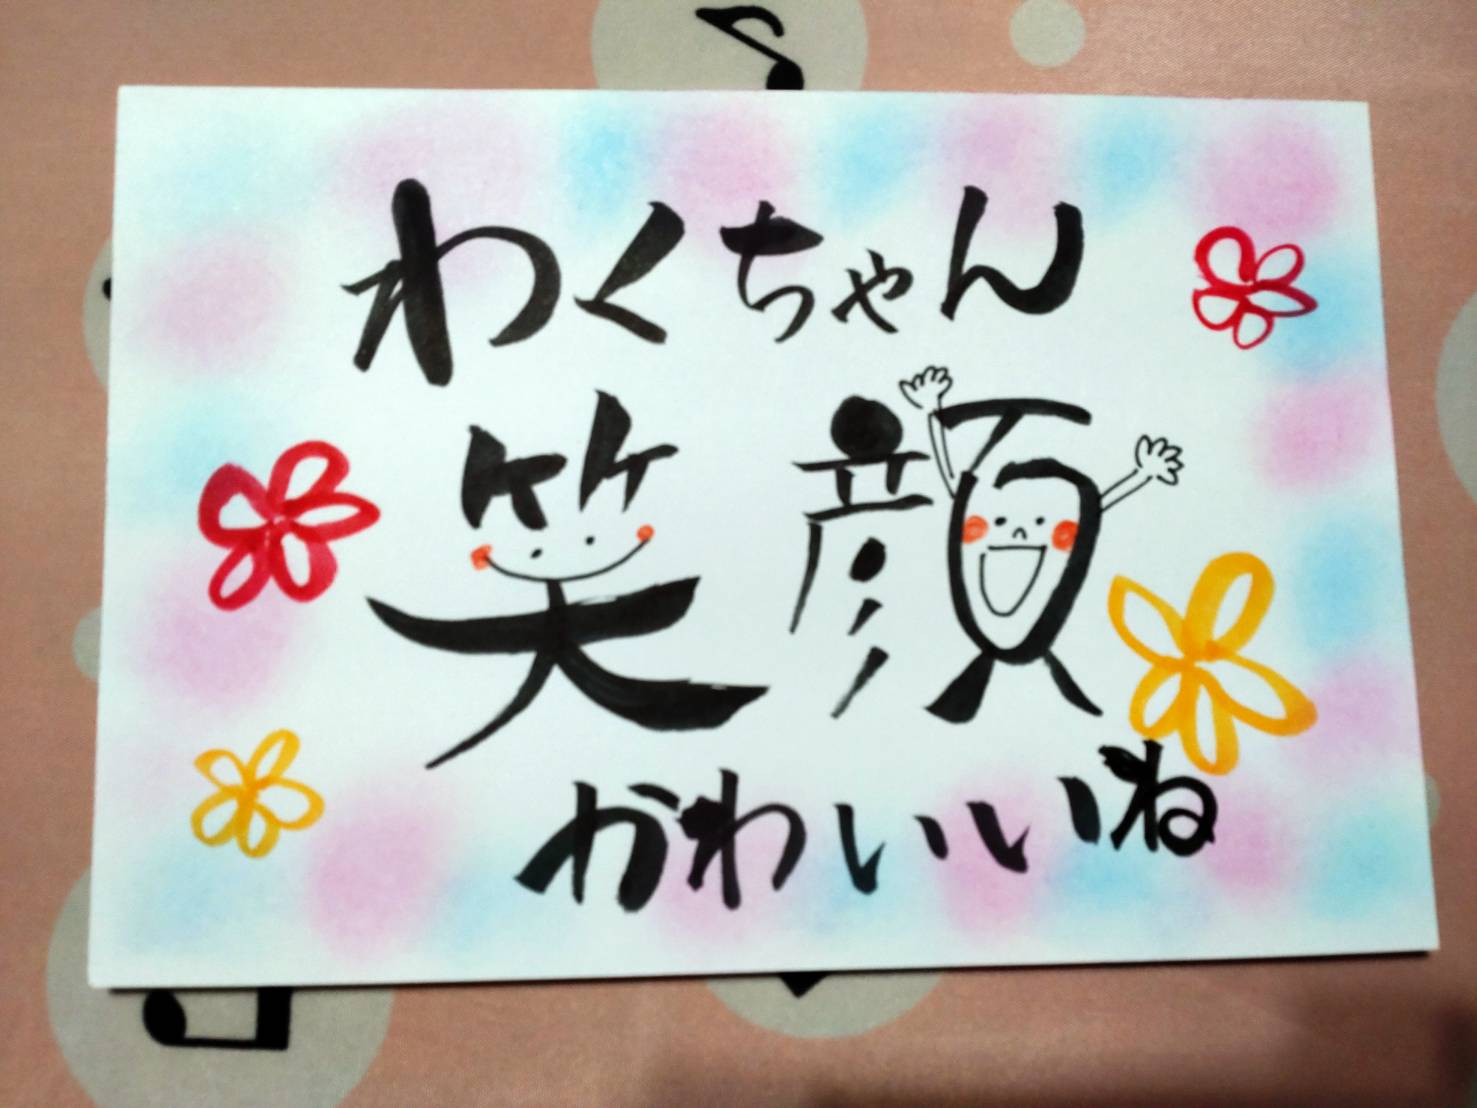 わくちゃん
笑顔
かわいいね